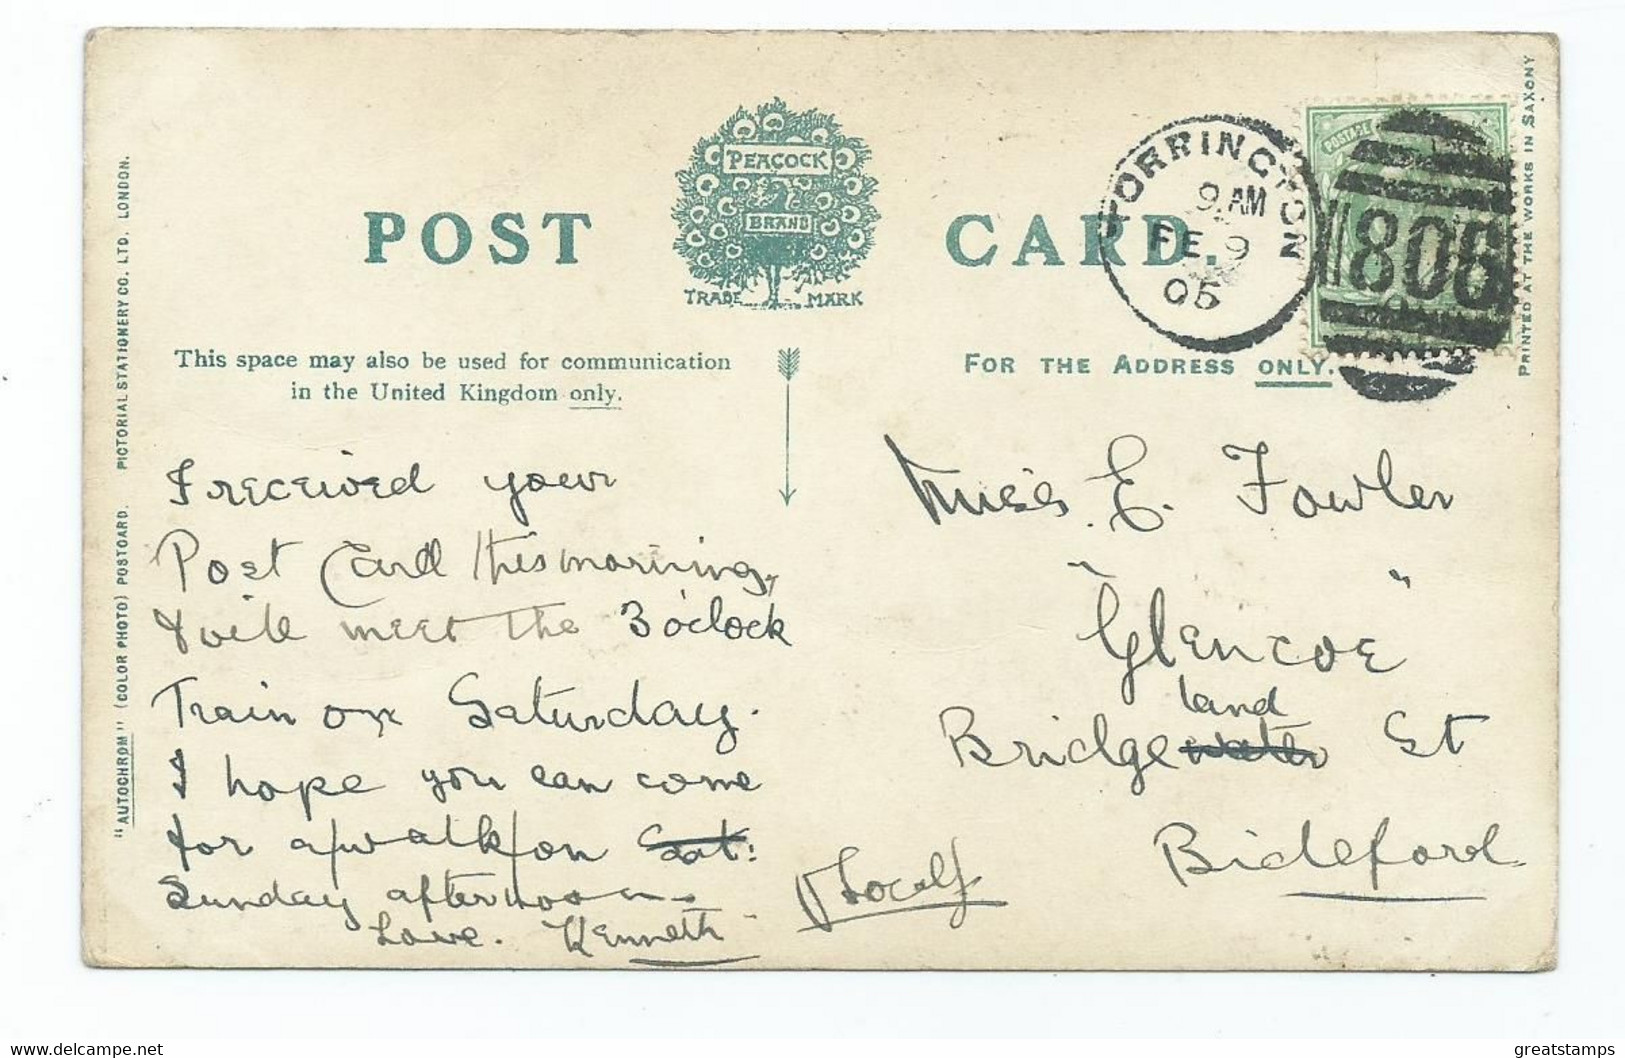 POST CARD.
PEACOCK
BRAND
TRADE MARK
This space may also be used for communication
in the United Kingdom only.
FOR THE ADDRESS ONLY.
"AUTOCHROM" (COLOR PHOTO) POSTCARD. PICTORIAL STATIONERY CO. LTD. LONDON.
PRINTED AT THE WORKS IN SAXONY
POSTAGE
TORRINGTON
9 AM
FE 9
05
806
I received your
Post Card this morning,
& will meet the 3 o'clock
Train on Saturday.
I hope you can come
for a walk on Sat:
Sunday afternoon.
Love. Kenneth
Miss E. Fowler
"Glencoe"
land
Bridgewater St
Bideford